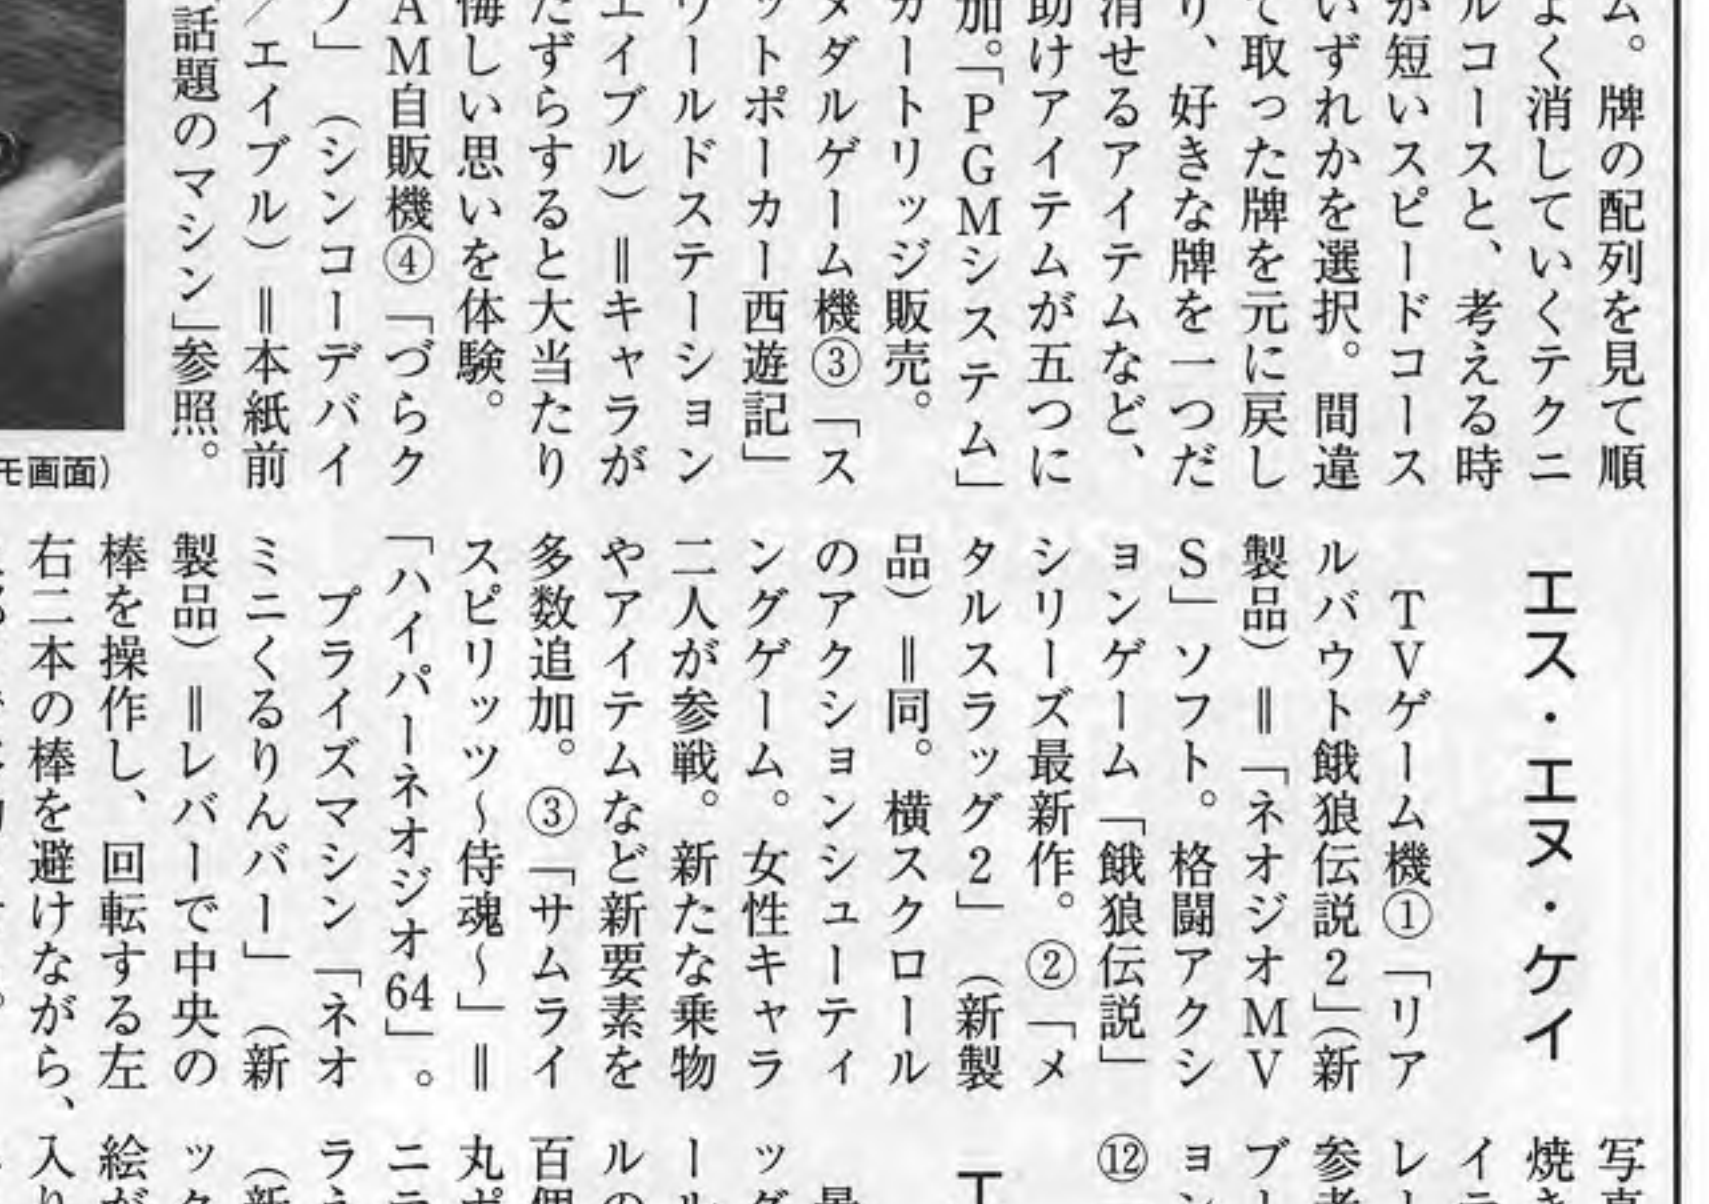 ム。牌の配列を見て順
よく消していくテクニ
ルコースと、考える時
が短いスピードコース
いずれかを選択。間違
て取った牌を元に戻し
り、好きな牌を一つだ
消せるアイテムなど、
助けアイテムが五つに
加。「PGMシステム」
カートリッジ販売。
メダルゲーム機③「ス
ットポーカー西遊記」
ワールドステーション
エイブル)＝キャラが
たずらすると大当たり
悔しい思いを体験。
AM自販機④「づらク
」(シンコーデバイ
/エイブル)＝本紙前
話題のマシン」参照。
モ画面)
エス・エヌ・ケイ
TVゲーム機①「リア
ルバウト餓狼伝説2」(新
製品)＝「ネオジオMV
S」ソフト。格闘アクシ
ョンゲーム「餓狼伝説」
シリーズ最新作。②「メ
タルスラッグ2」(新製
品)＝同。横スクロール
のアクションシューティ
ングゲーム。女性キャラ
二人が参戦。新たな乗物
やアイテムなど新要素を
多数追加。③「サムライ
スピリッツ～侍魂～」＝
「ハイパーネオジオ64」。
プライズマシン「ネオ
ミニくるりんバー」(新
製品)＝レバーで中央の
棒を操作し、回転する左
右二本の棒を避けながら、
写真
焼き
イラ
レー
参考
ブー
ョン
⑫
ッグ
ール
ルの
百個
丸ポ
ニラ
ラえ
(新
ック
絵が
入り